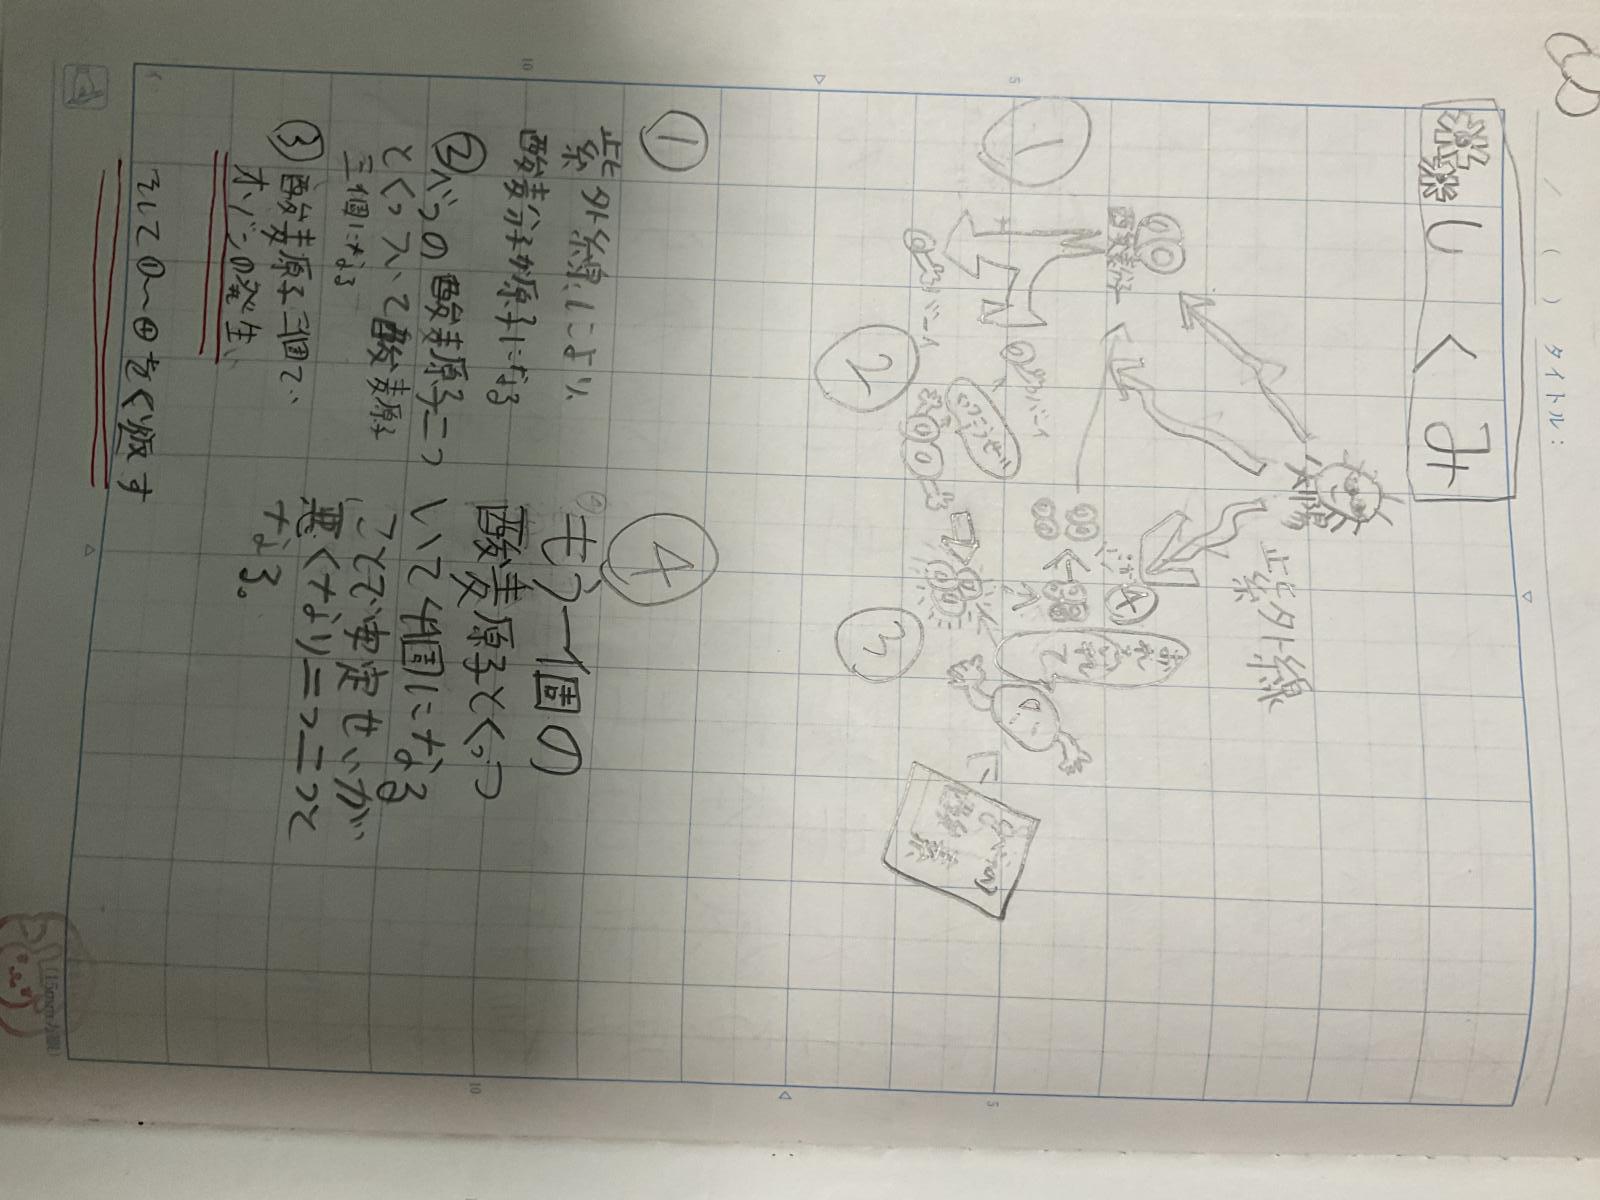 タイトル:
しくみ
太陽
紫外線
①
酸素分子
バーイ
バーイ
②
③
④
①
紫外線により
酸素分子が原子になる
②バつの酸素原子二つ
とくっついて酸素原子
三個になる
③酸素原子三個で、
オゾンの発生、
そして①~④をくり返す
④
もう一個の
酸素原子とくっつ
いて4個になる
ことで安定せいが
悪くなり二つ二つと
なる。
5
10
5
10